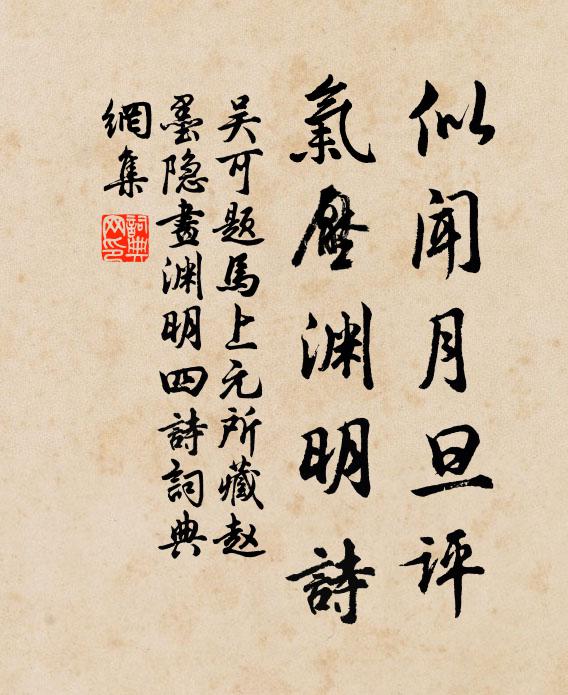 似闻月旦评
氣壓渊明詩
吴可题馬上元所藏赵
墨隐畫渊明四詩詞典
網集
詞典
网印